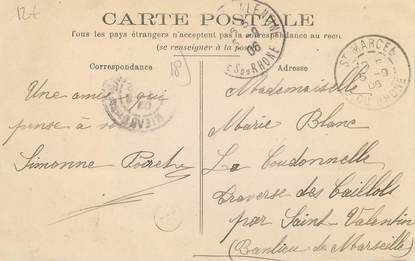 12f
CARTE POSTALE
Tous les pays étrangers n'acceptent pas la correspondance au recto
(se renseigner à la poste)
Correspondance
18
ST MARCEL
DU RHONE
08
S DU RHONE
Une amie qui
pense à
Simonne
Mademoiselle
Marie Blanc
La Coudonnelle
Traverse des Caillols
par Saint-Valentin
(Banlieu de Marseille)